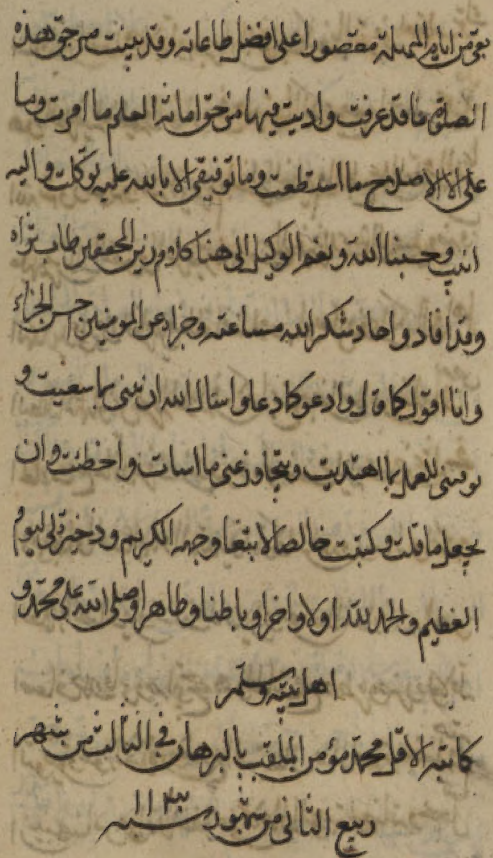 بقى من ايام المهلة مقصورا على افضل طاعاته وقد بينت من حق هذه
الصلوة ما قد عرفت واديت فيها من حق امانة العلم ما امرت وما
على الا الاصلاح ما استطعت وما توفيقى الا بالله عليه توكلت واليه
انيب وحسبنا الله ونعم الوكيل الى هنا كلام زين المحققين طاب ثراه
وقد افاد واجاد شكر الله مساعيه وجزاه عن المومنين احسن الجزاء
وانا اقول كما قال وادعو كما دعا واسال الله ان يثبنى بما سعيت و
يوفقنى للعمل بما اهتديت ويتجاوز عنى ما اسات واخطئت وان
يجعل ما قلت وكتبت خالصا لابتغا وجهه الكريم وذخيرة لى ليوم
العظيم والحمد لله اولا واخرا وباطنا وظاهرا وصلى الله على محمد و
اهل بيته وسلم
كاتبه الاقل محمد مؤمن الملقب بالبرهان فى الثالث من شهر
ربيع الثانى من شهور سنه